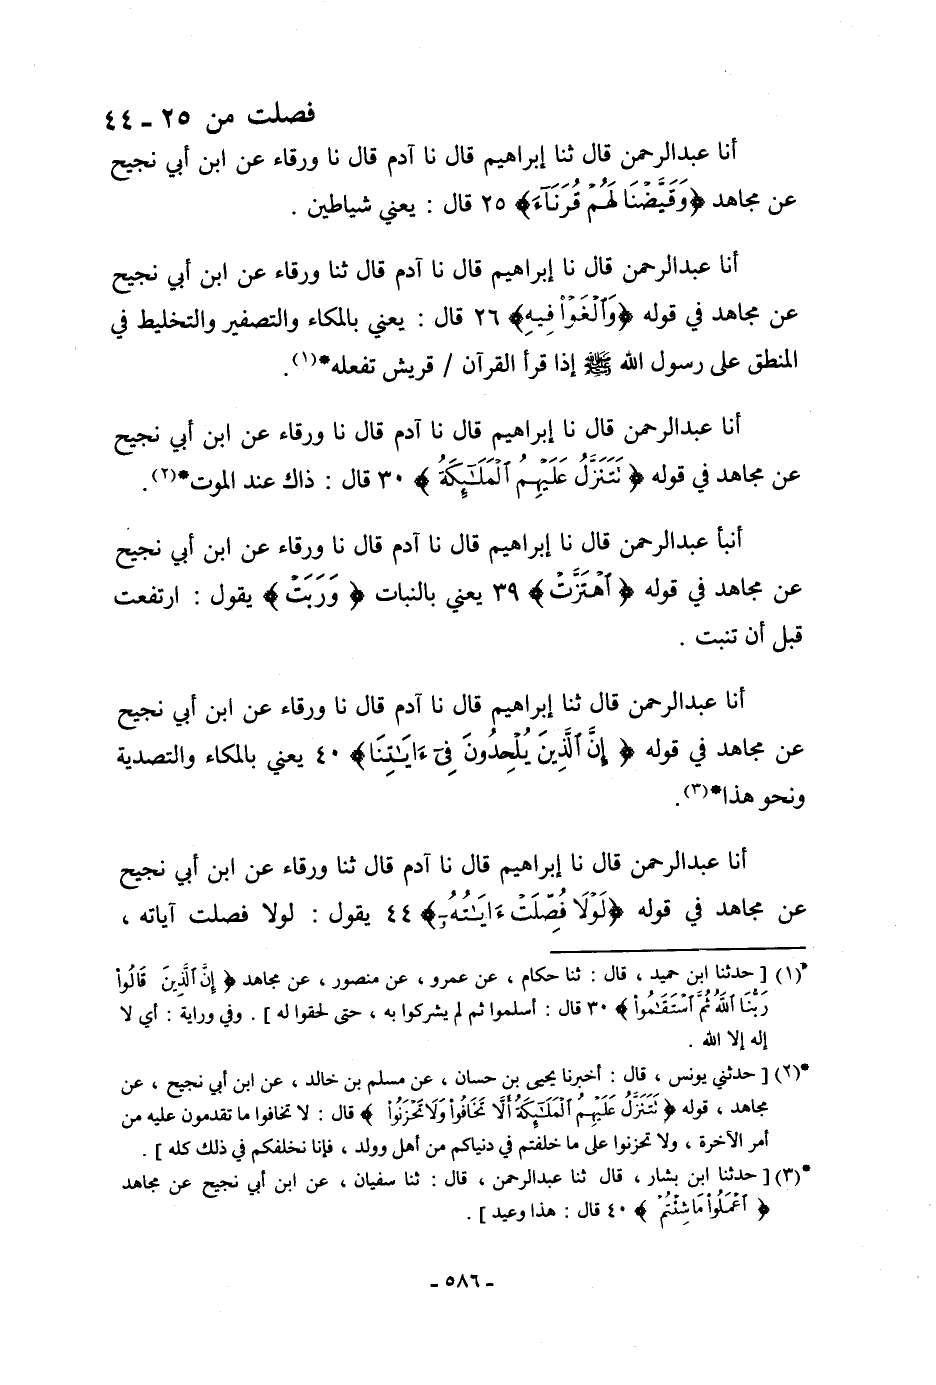 فصلت من ٢٥ ـ ٤٤
أنا عبدالرحمن قال ثنا إبراهيم قال نا آدم قال نا ورقاء عن ابن أبي نجيح
عن مجاهد ﴿وَقَيَّضْنَا لَهُمْ قُرَنَآءَ﴾ ٢٥ قال : يعني شياطين .
أنا عبدالرحمن قال نا إبراهيم قال نا آدم قال ثنا ورقاء عن ابن أبي نجيح
عن مجاهد في قوله ﴿وَٱلْغَوْا۟ فِيهِ﴾ ٢٦ قال : يعني بالمكاء والتصفير والتخليط في
المنطق على رسول الله ﷺ إذا قرأ القرآن / قريش تفعله*(١).
أنا عبدالرحمن قال نا إبراهيم قال نا آدم قال نا ورقاء عن ابن أبي نجيح
عن مجاهد في قوله ﴿ تَتَنَزَّلُ عَلَيْهِمُ ٱلْمَلَـٰٓئِكَةُ ﴾ ٣٠ قال : ذاك عند الموت*(٢).
أنبأ عبدالرحمن قال نا إبراهيم قال نا آدم قال نا ورقاء عن ابن أبي نجيح
عن مجاهد في قوله ﴿ ٱهْتَزَّتْ ﴾ ٣٩ يعني بالنبات ﴿ وَرَبَتْ ﴾ يقول : ارتفعت
قبل أن تنبت .
أنا عبدالرحمن قال ثنا إبراهيم قال نا آدم قال نا ورقاء عن ابن أبي نجيح
عن مجاهد في قوله ﴿ إِنَّ ٱلَّذِينَ يُلْحِدُونَ فِىٓ ءَايَـٰتِنَا﴾ ٤٠ يعني بالمكاء والتصدية
ونحو هذا*(٣).
أنا عبدالرحمن قال نا إبراهيم قال نا آدم قال ثنا ورقاء عن ابن أبي نجيح
عن مجاهد في قوله ﴿لَوْلَا فُصِّلَتْ ءَايَـٰتُهُۥٓ﴾ ٤٤ يقول : لولا فصلت آياته ،
*(١) [ حدثنا ابن حميد ، قال : ثنا حكام ، عن عمرو ، عن منصور ، عن مجاهد ﴿ إِنَّ ٱلَّذِينَ قَالُوا۟
رَبُّنَا ٱللَّهُ ثُمَّ ٱسْتَقَـٰمُوا۟ ﴾ ٣٠ قال : أسلموا ثم لم يشركوا به ، حتى لحقوا له ] . وفي وراية : أي لا
إله إلا الله .
*(٢) [ حدثني يونس ، قال : أخبرنا يحيى بن حسان ، عن مسلم بن خالد ، عن ابن أبي نجيح ، عن
مجاهد ، قوله ﴿ تَتَنَزَّلُ عَلَيْهِمُ ٱلْمَلَـٰٓئِكَةُ أَلَّا تَخَافُوا۟ وَلَا تَحْزَنُوا۟ ﴾ قال : لا تخافوا ما تقدمون عليه من
أمر الآخرة ، ولا تحزنوا على ما خلفتم في دنياكم من أهل وولد ، فإنا نخلفكم في ذلك كله ] .
*(٣) [ حدثنا ابن بشار ، قال ثنا عبدالرحمن ، قال : ثنا سفيان ، عن ابن أبي نجيح عن مجاهد
﴿ ٱعْمَلُوا۟ مَا شِئْتُمْ ﴾ ٤٠ قال : هذا وعيد ] .
ـ ٥٨٦ ـ